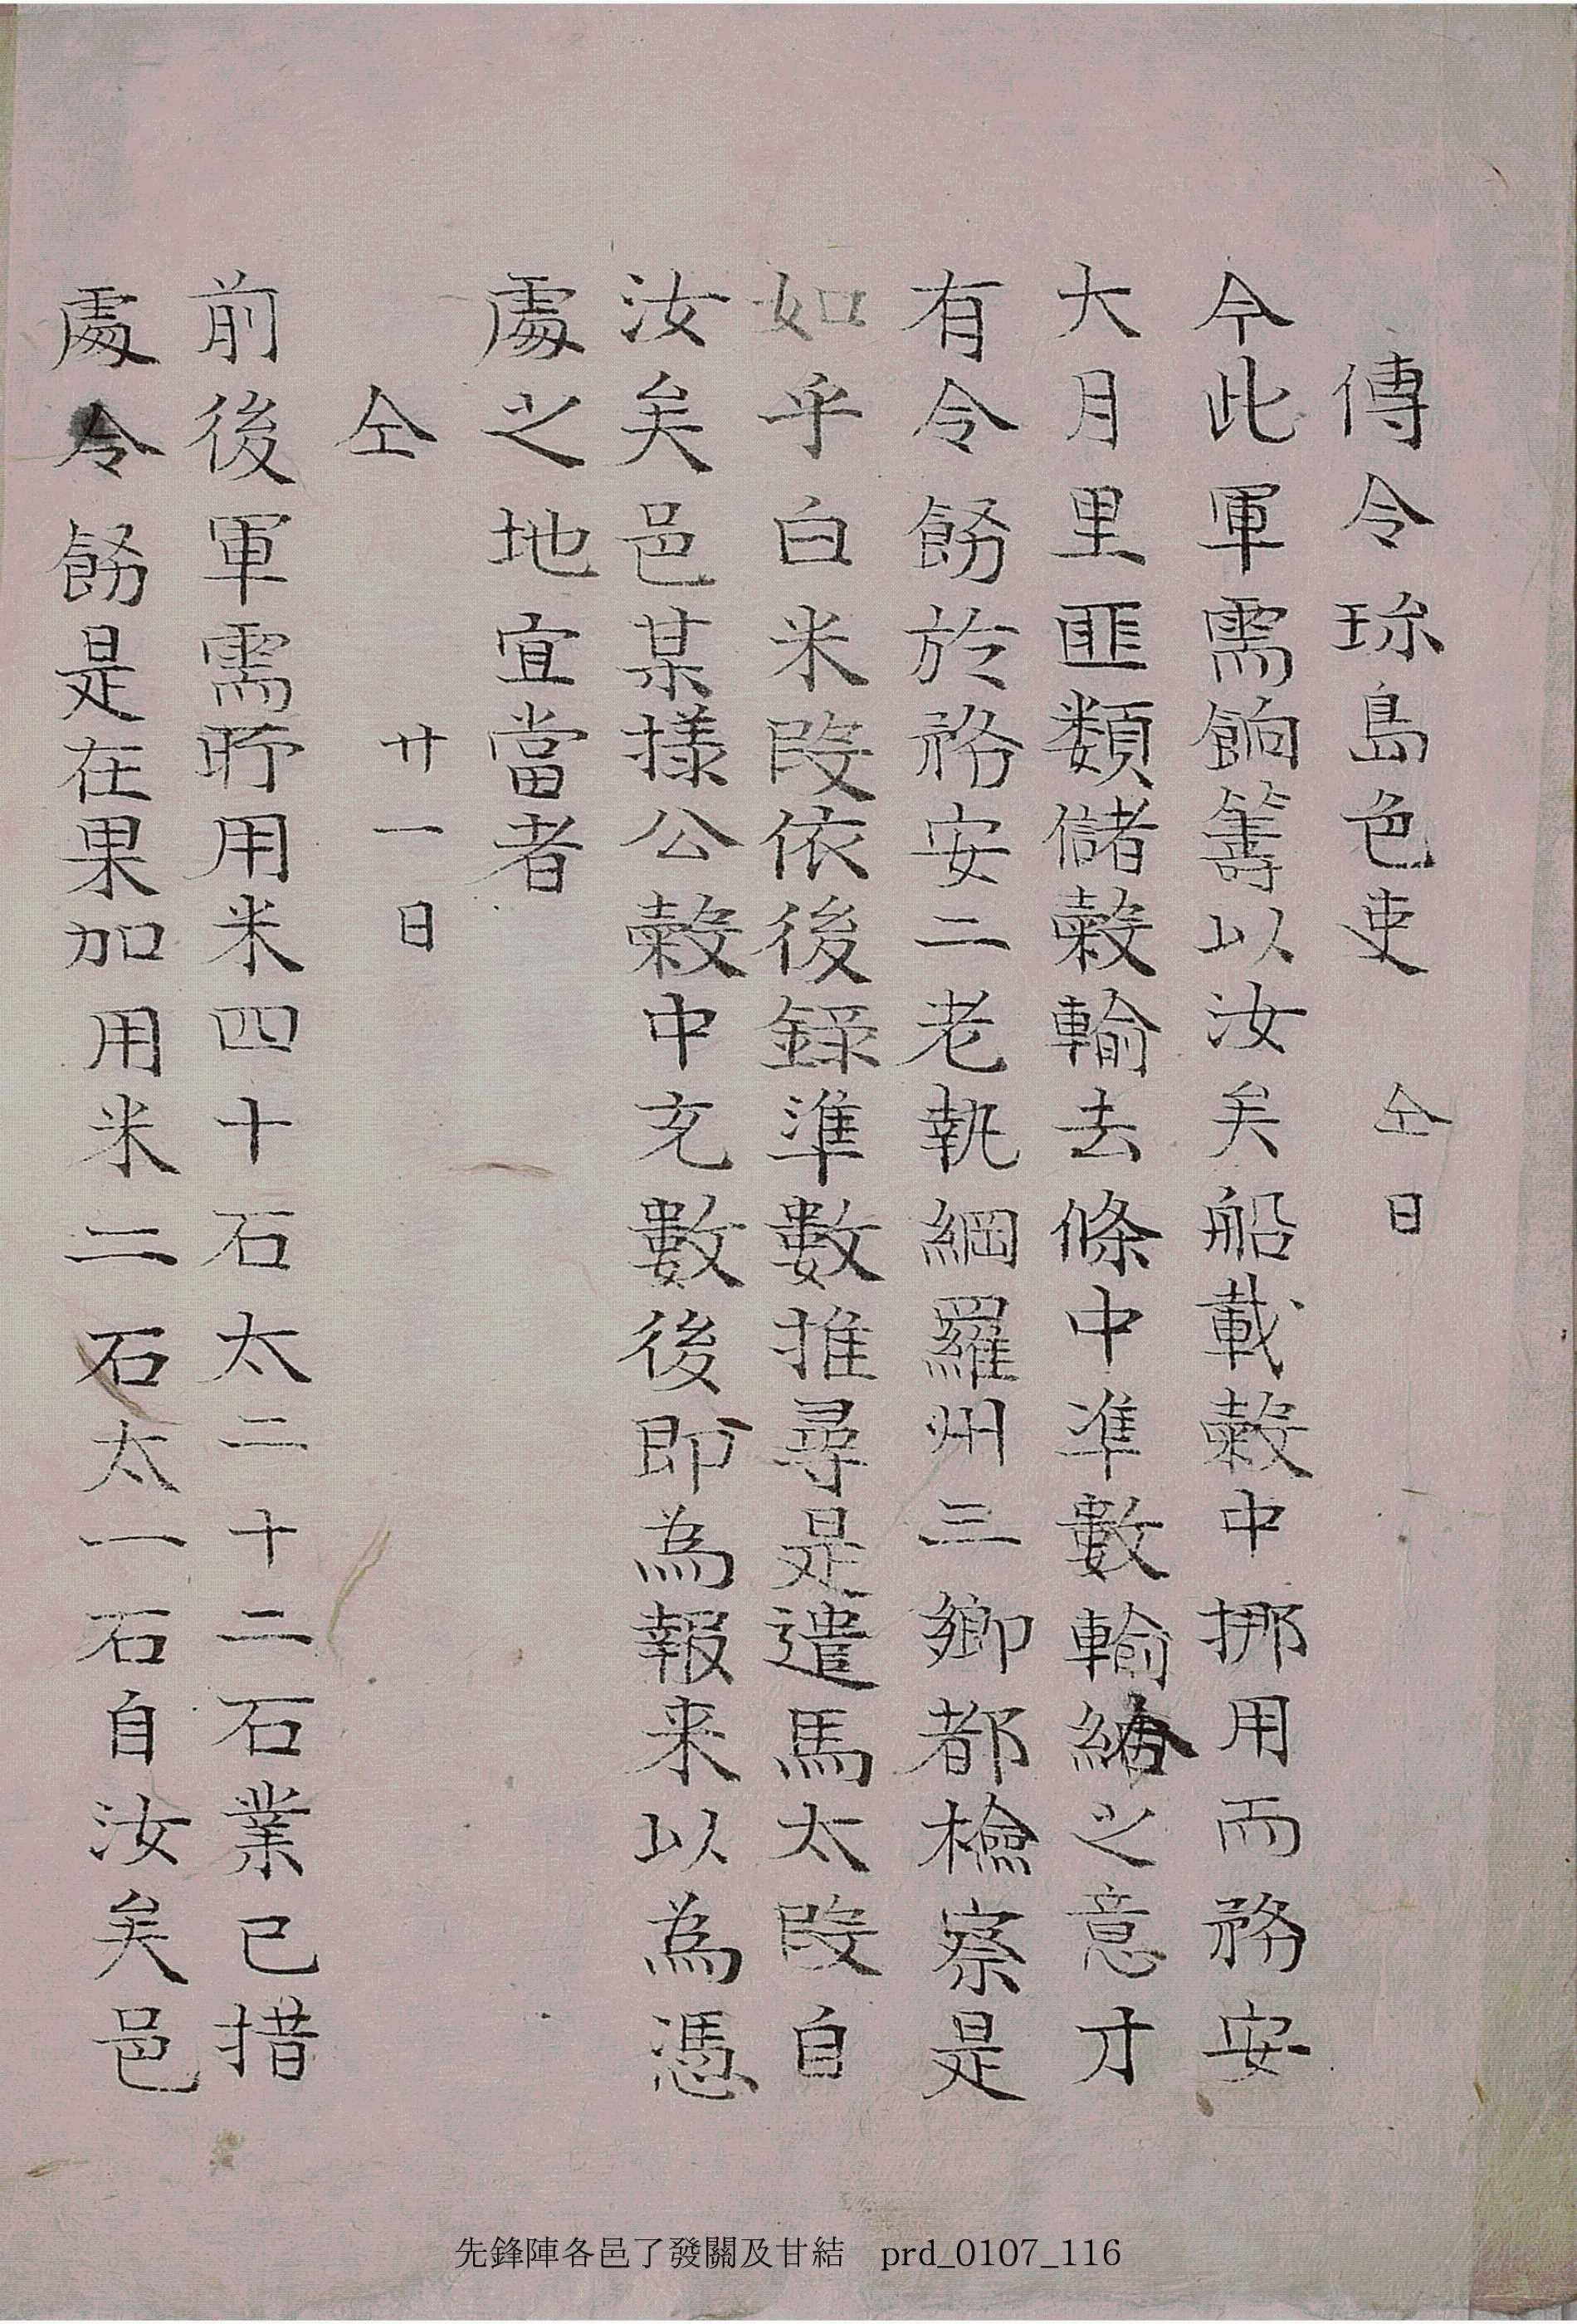 傳令珎島色吏　仝日
今此軍需餉籌以汝矣船載糓中挪用而務安
大月里匪類儲糓輸去條中準數輸給之意才
有令飭於務安二老執綱羅州三鄕都檢察是
如乎白米段依後錄準數推尋是遣馬太段自
汝矣邑某㨾公糓中充數後即為報来以為憑
處之地宜當者
仝　　廿一日
前後軍需所用米四十石太二十二石業已措
處令飭是在果加用米二石太一石自汝矣邑
先鋒陣各邑了發關及甘結　prd_0107_116